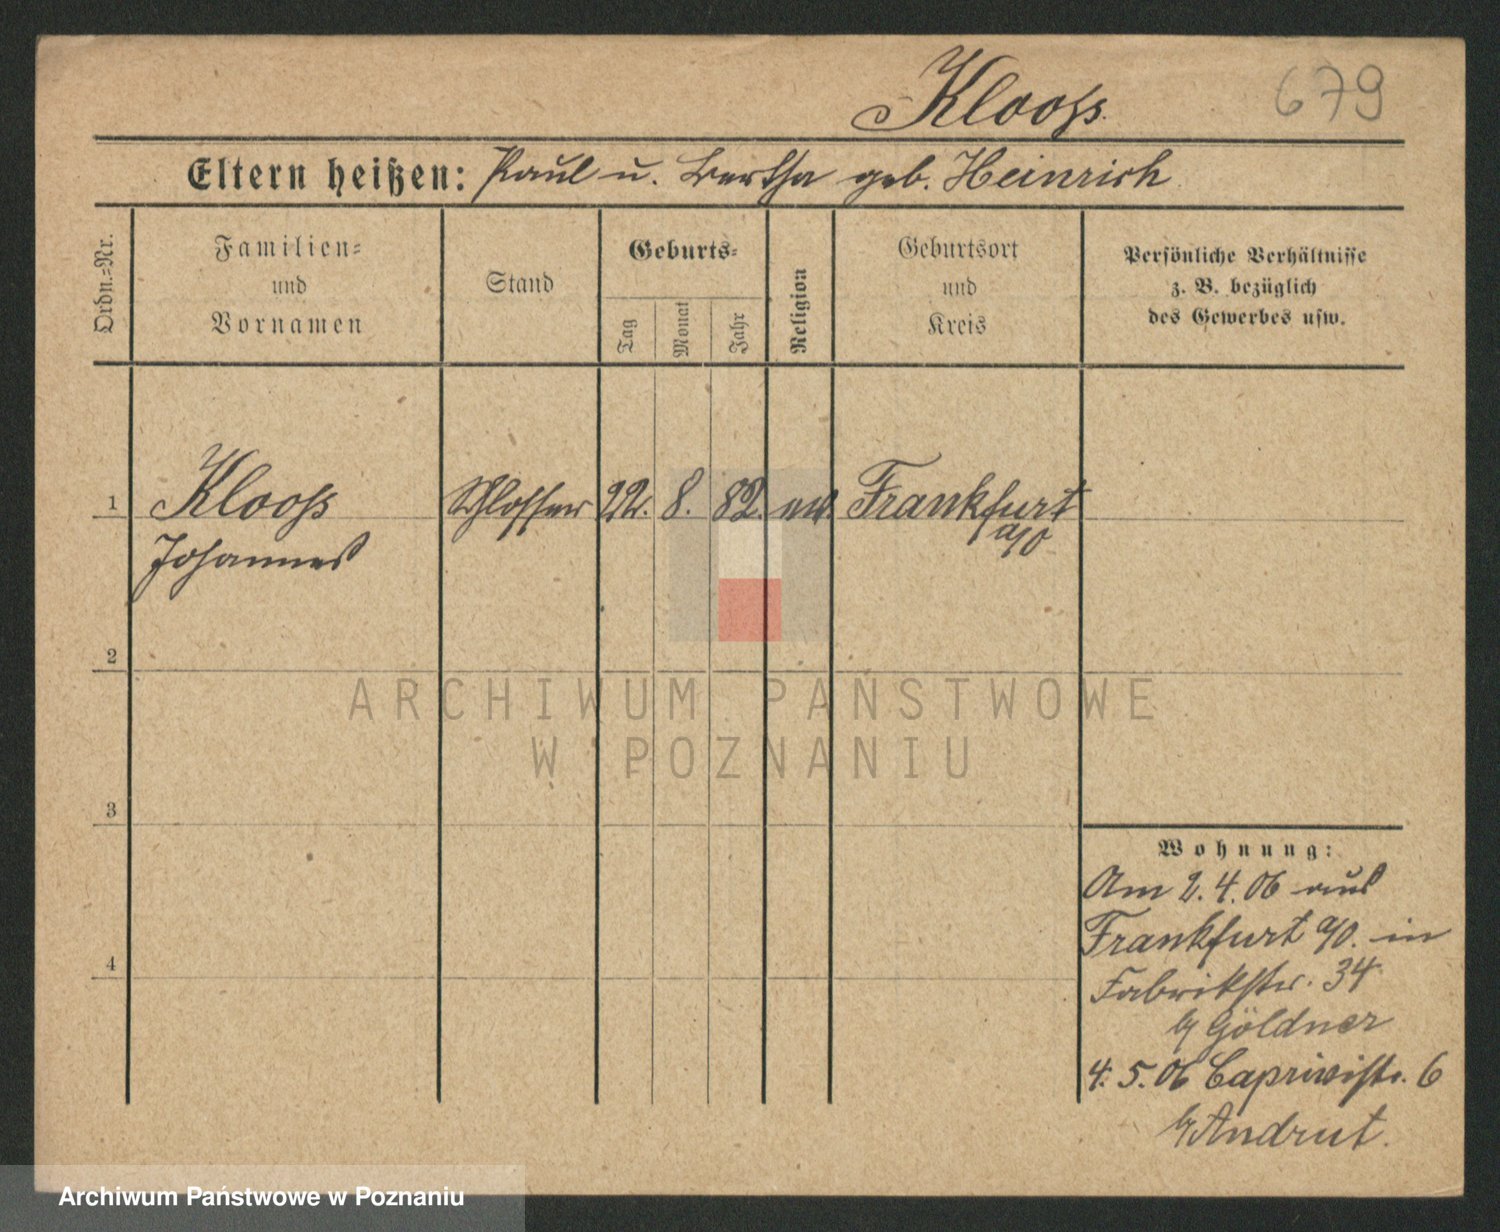 Klooss.
679
Eltern heißen: Paul u. Bertha geb. Heinrich
Ordn.=Nr.
Familien=
und
Vornamen
Stand
Geburts=
Tag
Monat
Jahr
Religion
Geburtsort
und
Kreis
Persönliche Verhältnisse
z. B. bezüglich
des Gewerbes usw.
1
Klooss Schlosser 22. 8. 82. ev. Frankfurt
a/O
Johannes
2
ARCHIWUM PAŃSTWOWE
W POZNANIU
3
Wohnung:
Am 2. 4. 06 aus
Frankfurt a/O. in
4
Fabrikstr. 34
b/ Göldner
4. 5. 06 Caprivistr. 6
b/ Andrut.
Archiwum Państwowe w Poznaniu